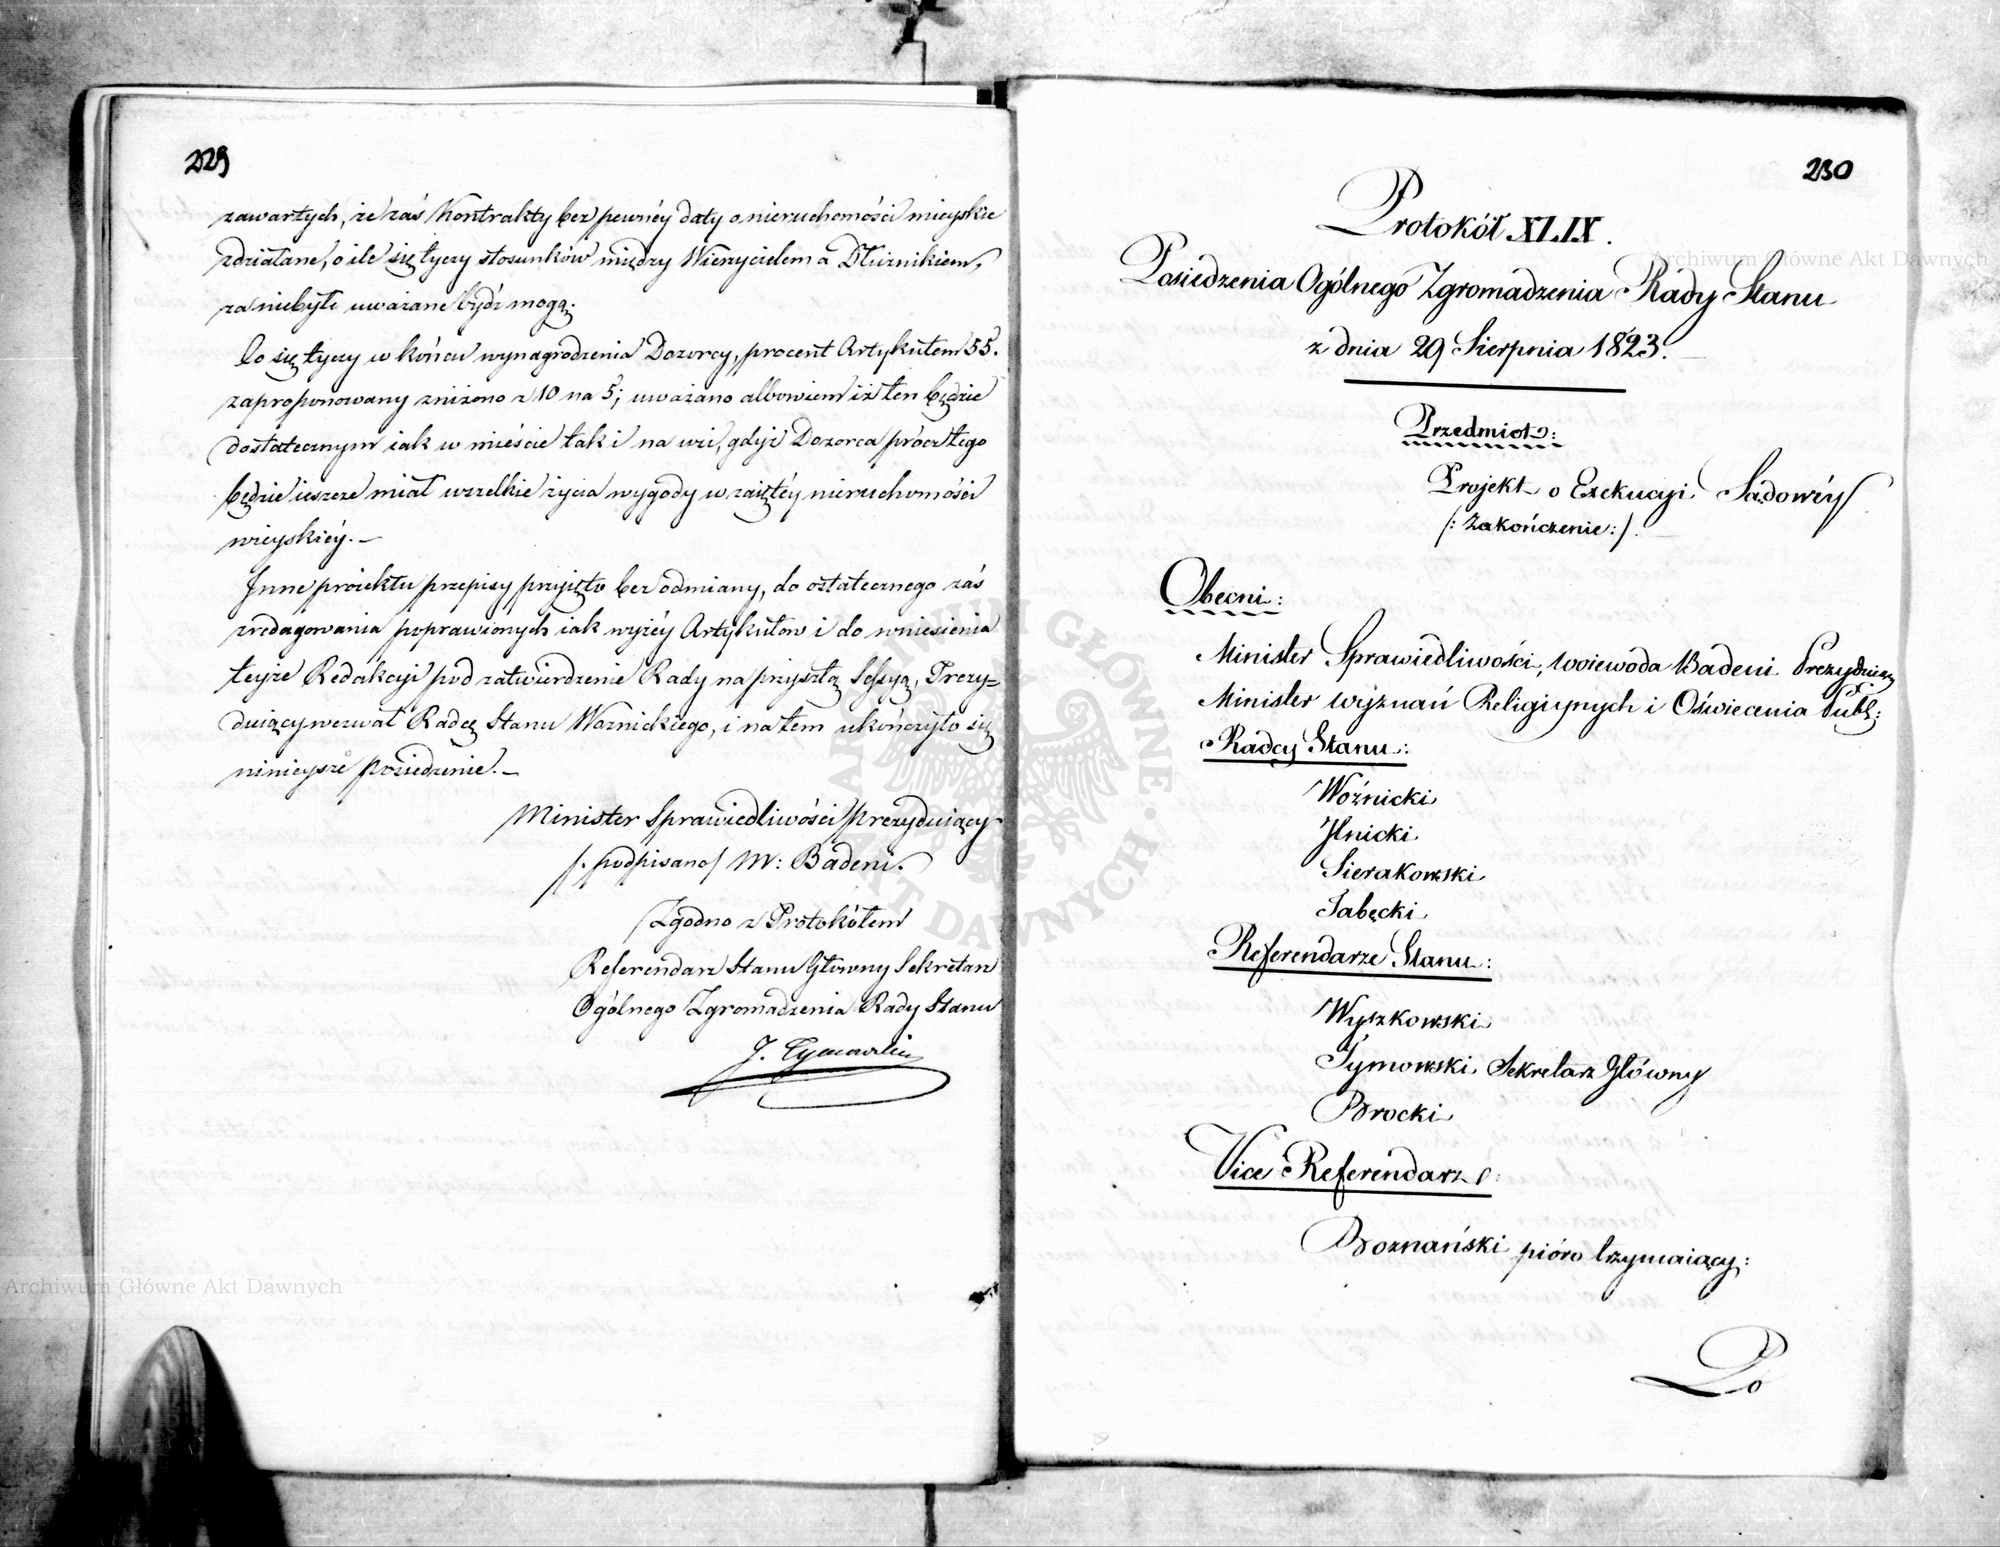 229
zawartych, że zaś Kontrakty bez pewnéy daty o nieruchomości mieyskie
zdziałane, o ile się tyczy stosunków między Wierzycielem a Dłużnikiem,
za niebyłe uważane bydź mogą.
Co się tyczy w końcu wynagrodzenia Dozorcy, procent Artykułem 55.
zaproponowany zniżono z 10 na 5; uważano albowiem iż ten będzie
dostatecznym iak w mieście tak i na wsi, gdyż Dozorca prócz tego
będzie ieszcze miał wszelkie życia wygody w zaiętéy nieruchomości
wieyskiéy.—
Inne proiektu przepisy przyięto bez odmiany, do ostatecznego zaś
zredagowania poprawionych iak wyżéy Artykułów i do wniesienia
teyże Redakcyi pod zatwierdzenie Rady na przyszłą Sessyą, Prezy=
duiący wezwał Radcę Stanu Woznickiego, i na tem ukończyło się
ninieysze posiedzenie.—
Minister Sprawiedliwości Prezyduiący
/: podpisano/ M: Badeni.
Zgodno z Protokółem
Referendarz Stanu Głowny Sekretarz
Ogólnego Zgromadzenia Rady Stanu
J. Tymowski
230
Protokół XLIX.
Posiedzenia Ogólnego Zgromadzenia Rady Stanu
z dnia 29 Sierpnia 1823.
Przedmiot:
Projekt o Exekucyi Sądowéy
/: Zakończenie :/.
Obecni:
Minister Sprawiedliwości, Woiewoda Badeni Prezyduiący
Minister wyznań Religiynych i Oświecenia Publ:
Radcy Stanu:
Woźnicki
Ilnicki
Sierakowski
Łabęcki
Referendarze Stanu:
Wyszkowski
Tymowski Sekretarz Główny
Brocki
Vice Referendarze:
Boznański pióro trzymaiący:
Po
Archiwum Główne Akt Dawnych
Archiwum Główne Akt Dawnych
ARCHIWUM GŁÓWNE AKT DAWNYCH